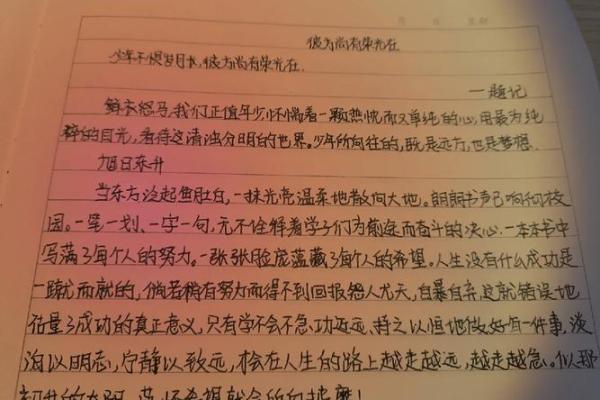 彼方尚有荣光在
少年不惧岁月长,彼方尚有荣光在.
—题记
鲜衣怒马,我们正值年少,怀惴着一颗热忱而又单纯的心,用最为纯
粹的目光,看待这清浊分明的世界。少年所向往的,既是远方,也是梦想.
旭日东升
当东方泛起鱼肚白,一抹光亮温柔地散向大地。朗朗书声已响彻校
园。一笔一划、一字一句,无不诠释着学子们为前途而奋斗的决心.一本本书中
写满了每个人的努力。一张张脸庞蕴藏了每个人的希望。人生没有什么成功是
一蹴而就的,倘若稍有努力而得不到回报怨人尤天,自暴自弃,这就错误地
估量了成功的真正意义,只有学不会不急.功近远,持之以恒地做好有一件事,淡
泊以明志,宁静以致远,才会在人生的路上越走越远,越走越急。似那
初升的太阳,满怀希望就会所向披靡!